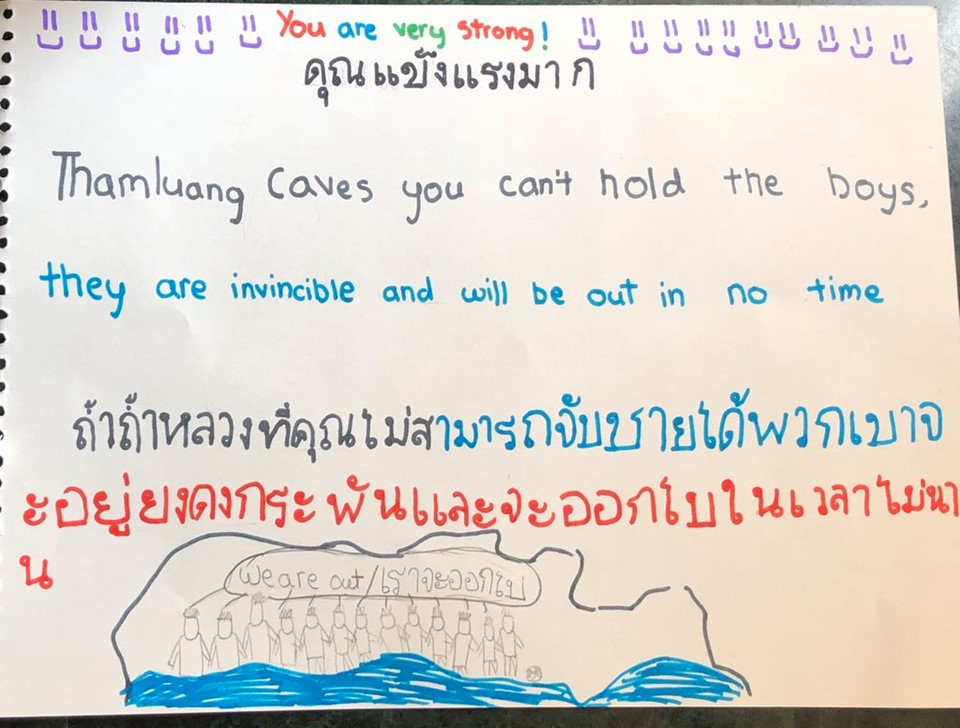 You are very strong!
คุณแข็งแรงมาก
Thamluang Caves you can't hold the boys,
they are invincible and will be out in no time
ถ้ำถ้ำหลวงที่คุณไม่สามารถจับชายได้พวกเขาจ
ะอยู่ยงคงกระพันและจะออกไปในเวลาไม่นา
น
we are out/เราจะออกไป